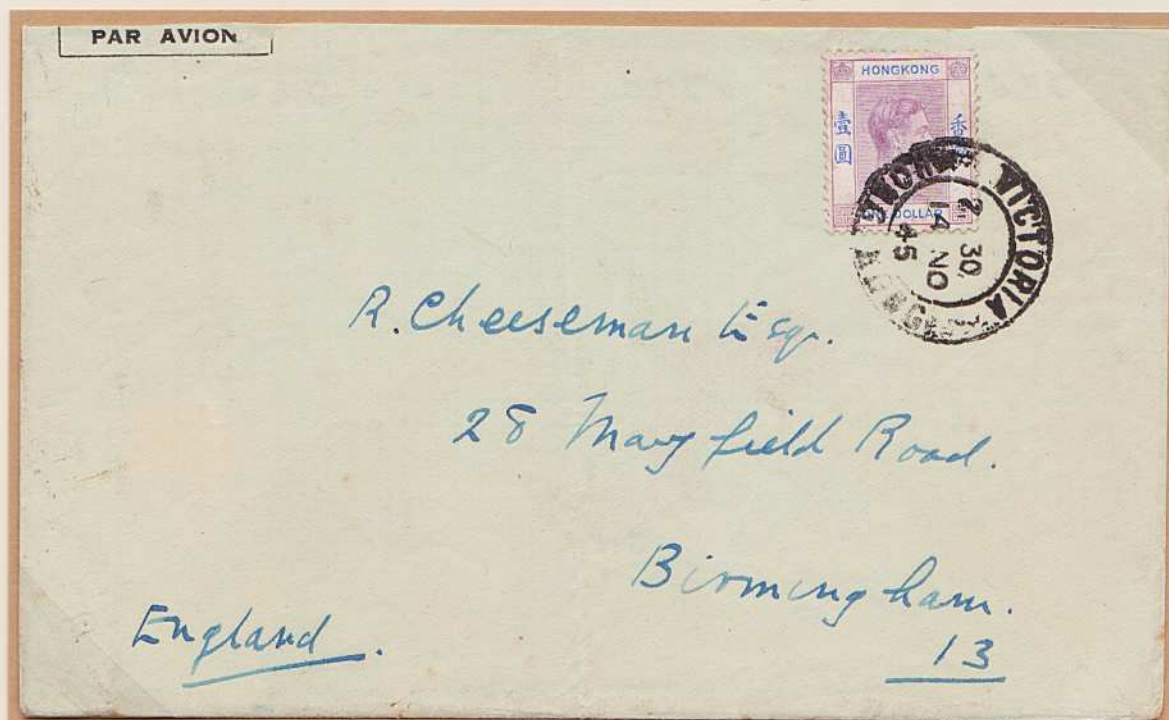 PAR AVION
HONGKONG
壹圓
香
DOLLAR
VICTORIA
2 30
14 NO
45
R. Cheeseman Esqr.
28 Mayfield Road.
Birmingham.
13
England.